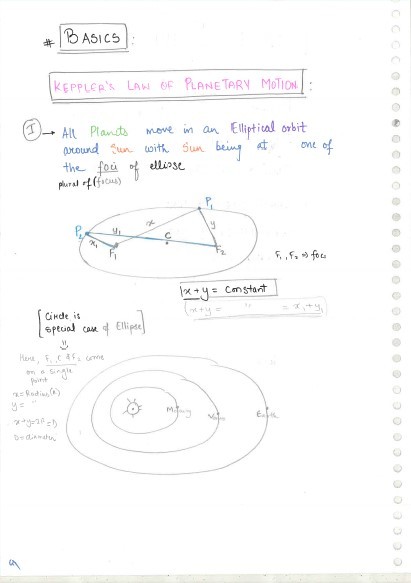 # BASICS :
KEPPLER'S LAW OF PLANETARY MOTION :
I → All Planets move in an Elliptical orbit
around Sun with Sun being at one of
the foci of ellipse
plural of (focus)
P1
x
P2
y1
C
y
x1
F1
F2
F1, F2 ⇒ foci
x+y = Constant
x+y = " = x1+y1
[Circle is
special case of Ellipse]
Here, F1, C & F2 come
on a single
point
x = Radius (R)
y = "
x+y=2R=D
D=diameter
Mercury
Venus
Earth